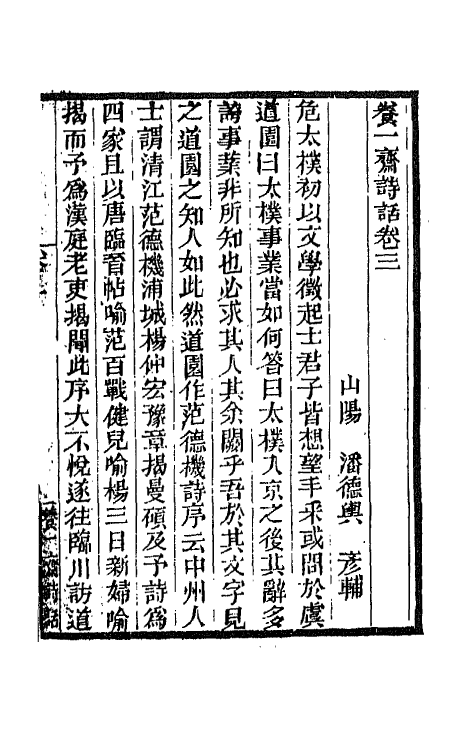 養一齋詩話卷三
山陽　潘德輿　彦輔
危太樸初以文學徵起士君子皆想望丰采或問於虞
道園曰太樸事業當如何答曰太樸入京之後其辭多
誇事業非所知也必求其人其余闕乎吾於其文字見
之道園之知人如此然道園作范德機詩序云中州人
士謂清江范德機浦城楊仲宏豫章揭曼碩及予詩爲
四家且以唐臨晉帖喻范百戰健兒喻楊三日新婦喻
揭而予爲漢庭老吏揭聞此序大不悅遂往臨川訪道
養一齋詩話